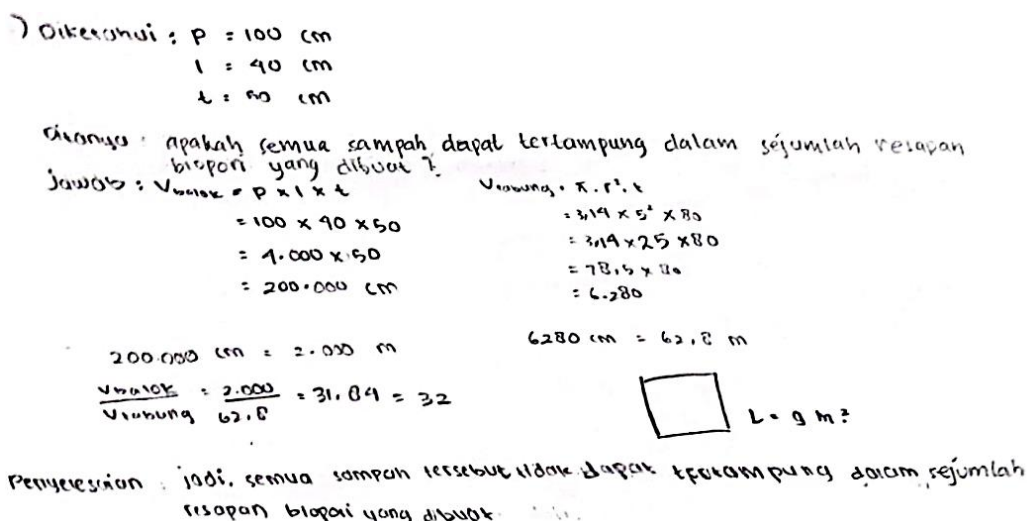 ) Diketahui : P = 100 cm
l = 40 cm
t = 50 cm
ditanya : apakah semua sampah dapat tertampung dalam sejumlah resapan
biopori yang dibuat ?
Jawab : Vbalok = P x l x t
= 100 x 40 x 50
= 4.000 x 50
= 200.000 cm
Vtabung = π . r² . t
= 3,14 x 5² x 80
= 3,14 x 25 x 80
= 78,5 x 80
= 6.280
200.000 cm = 2.000 m
Vbalok / Vtabung = 2.000 / 62,8 = 31,84 = 32
6280 cm = 62,8 m
L = 9 m²
Penyelesaian : jadi, semua sampah tersebut tidak dapat tertampung dalam sejumlah
resapan biopori yang dibuat.